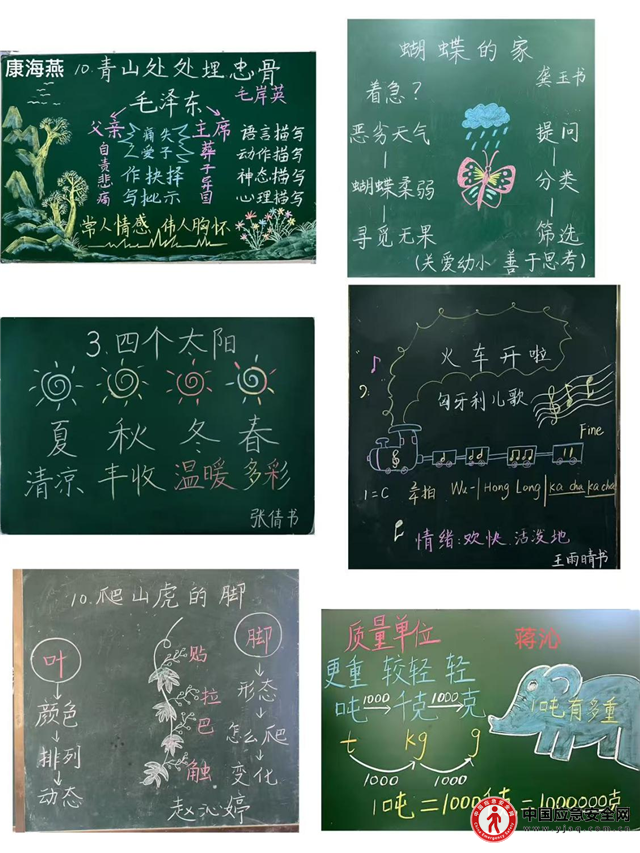 康海燕
10.青山处处埋忠骨
毛岸英
毛泽东
父亲 主席
痛失爱子
作抉择
写批示
自责悲痛
葬子异国
语言描写
动作描写
神态描写
心理描写
常人情感 伟人胸怀
蝴蝶的家
龚玉书
着急?
恶劣天气
蝴蝶柔弱
寻觅无果
提问
分类
筛选
(关爱幼小 善于思考)
3.四个太阳
夏 秋 冬 春
清凉 丰收 温暖 多彩
张倩书
火车开啦
匈牙利儿歌
Fine
1=C 2/4拍 Wu-|Hong Long|ka cha ka cha|
情绪:欢快.活泼地
王雨晴书
10.爬山虎的脚
叶
颜色
排列
动态
贴
拉
巴
触
脚
形态
怎么爬
变化
赵沁婷
质量单位
蒋沁
更重 较轻 轻
吨 1000 千克 1000 克
t kg g
1000 1000
1吨有多重
1吨=1000千克=1000000克
中国应急安全网
www.yjaq.com.cn